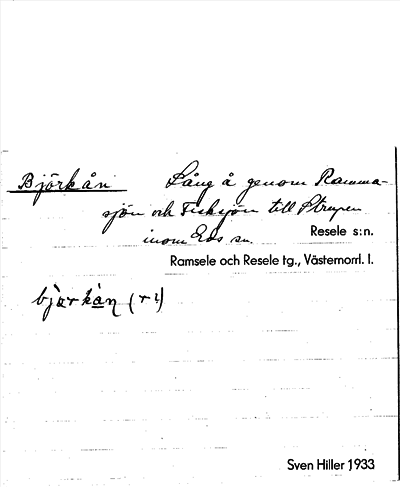 Björkån Lång å genom Ramma-
sjön och Fisksjön till Strupen
inom Eds sn. Resele s:n.
Ramsele och Resele tg., Västernorrl. l.
bjørkån (r¹)
Sven Hiller 1933